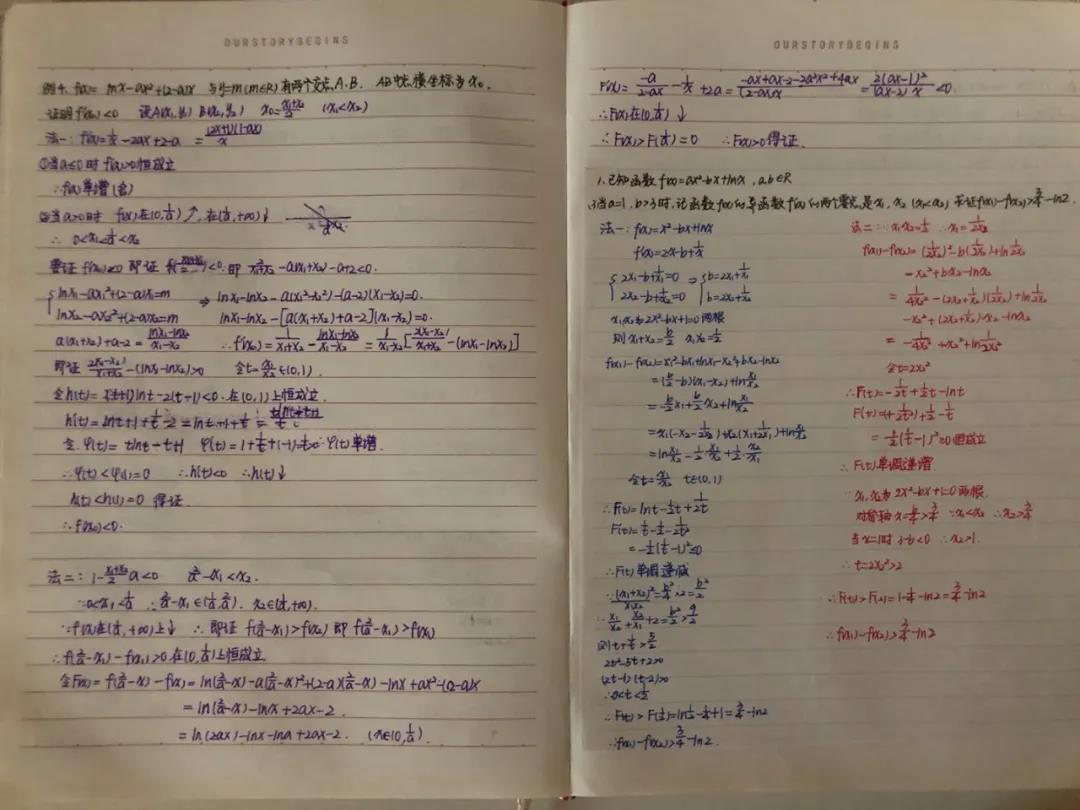 OURSTORYBEGINS
例4. f(x)= lnx-ax²+(2-a)x 与y=m(m∈R)有两个交点A.B. AB中点横坐标为x₀.
证明f'(x₀)<0 设A(x₁,y₁) B(x₂,y₂) x₀=(x₁+x₂)/2 (x₁<x₂)
法一: f'(x)=1/x-2ax+2-a = (2x+1)(1-ax)/x
①当a≤0时 f'(x)>0恒成立
∴f(x)单增(舍)
②当a>0时 f(x)在(0,1/a)↗,在(1/a,+∞)↓
∴ 0<x₁<1/a<x₂
要证f'(x₀)<0 即证 f'((x₁+x₂)/2)<0. 即 2/(x₁+x₂)-a(x₁+x₂)-a+2<0.
{lnx₁-ax₁²+(2-a)x₁=m ⇒ lnx₁-lnx₂-a(x₁²-x₂²)-(a-2)(x₁-x₂)=0.
lnx₂-ax₂²+(2-a)x₂=m lnx₁-lnx₂-[a(x₁+x₂)+a-2](x₁-x₂)=0.
a(x₁+x₂)+a-2=(lnx₁-lnx₂)/(x₁-x₂) ∴f'(x₀)=2/(x₁+x₂)-(lnx₁-lnx₂)/(x₁-x₂)=1/(x₁-x₂)[2(x₁-x₂)/(x₁+x₂)-(lnx₁-lnx₂)]
即证 2(x₁-x₂)/(x₁+x₂)-(lnx₁-lnx₂)>0 令t=x₁/x₂∈(0,1).
令h(t)=(t+1)lnt-2(t-1)<0.在(0,1)上恒成立
h'(t)=lnt+1+1/t-2=lnt-1+1/t=(tlnt-t+1)/t
令φ(t)=tlnt-t+1
∴φ(t) φ(1)=0 ∴h(t)<0 ∴h(t)↓
h(t)<h(1)=0 得证.
∴f'(x₀)<0.
法二: 1-(x₁+x₂)/2 a<0 2/a-x₁<x₂.
∵0<x₁<1/a ∴2/a-x₁∈(1/a,2/a). x₂∈(1/a,+∞).
∵f(x)在(1/a,+∞)上↓ ∴即证 f(2/a-x₁)>f(x₂) 即 f(2/a-x₁)>f(x₁)
∴f(2/a-x₁)-f(x₁)>0在(0,1/a)上恒成立
令F(x)=f(2/a-x)-f(x)=ln(2/a-x)-a(2/a-x)²+(2-a)(2/a-x)-lnx+ax²-(2-a)x
=ln(2/a-x)-lnx+2ax-2.
=ln(2-ax)-lnx-lna+2ax-2. (x∈(0,1/a).
OURSTORYBEGINS
F'(x)=-a/(2-ax)-1/x+2a=(-ax+ax-2-2a²x²+4ax)/((2-ax)x)=2(ax-1)²/((ax-2)x)<0.
∴F(x)在(0,1/a)↓
∴F(x)>F(1/a)=0 ∴F(x)>0得证.
1.已知函数f(x)=ax²-bx+lnx, a.b∈R
(3)当a=1,b>3时,记函数f(x)的导函数f'(x)的两个零点是x₁,x₂(x₁<x₂) 求证f(x₁)-f(x₂)>3/4-ln2.
法一: f(x)=x²-bx+lnx
f'(x)=2x-b+1/x
{2x₁-b+1/x₁=0 ⇒{b=2x₁+1/x₁
2x₂-b+1/x₂=0 b=2x₂+1/x₂
x₁,x₂为2x²-bx+1=0两根
则x₁+x₂=b/2 x₁x₂=1/2
f(x₁)-f(x₂)=x₁²-bx₁+lnx₁-x₂²+bx₂-lnx₂
=(b/2-b)(x₁-x₂)+ln x₁/x₂
=-b/2x₁+b/2x₂+ln x₁/x₂
=ln x₁/x₂-1/2·x₁/x₂+1/2·x₂/x₁
令t=x₁/x₂ t∈(0,1)
∴F(t)=lnt-1/2t+1/2t
F'(t)=1/t-1/2-1/2t²
=-1/2(1/t-1)²≤0
∴F(t)单调递减
∴(x₁+x₂)²/x₁x₂=b²/4×2=b²/2
∴x₁/x₂+x₂/x₁+2=b²/2>9/2
则t+1/t>5/2
2t²-5t+2>0
(2t-1)(t-2)>0
∴0<t<1/2
∴F(t)>F(1/2)=ln1/2-1/4+1=3/4-ln2
∴f(x₁)-f(x₂)>3/4-ln2.
法二: ∵x₁x₂=1/2 ∴x₁=1/2x₂
f(x₁)-f(x₂)=(1/2x₂)²-b(1/2x₂)+ln1/2x₂
-x₂²+bx₂-lnx₂
=1/4x₂²-(2x₂+1/x₂)(1/2x₂)+ln1/2x₂
-x₂²+(2x₂+1/x₂)·x₂-lnx₂
=-1/4x₂²+x₂²+ln1/2x₂²
令t=2x₂²
∴F(t)=-1/2t+1/2t-lnt
=1/2(1/t-1)²≥0恒成立
∴F(t)单调递增
∵x₁,x₂为2x²-bx+1=0两根.
对称轴x=b/4>3/4 ∵x₁<x₂ ∴x₂>3/4
当x=1时 3-b<0 ∴x₂>1.
∴t=2x₂²>2
∴F(t)>F(2)=1-1/4-ln2=3/4-ln2
∴f(x₁)-f(x₂)>3/4-ln2